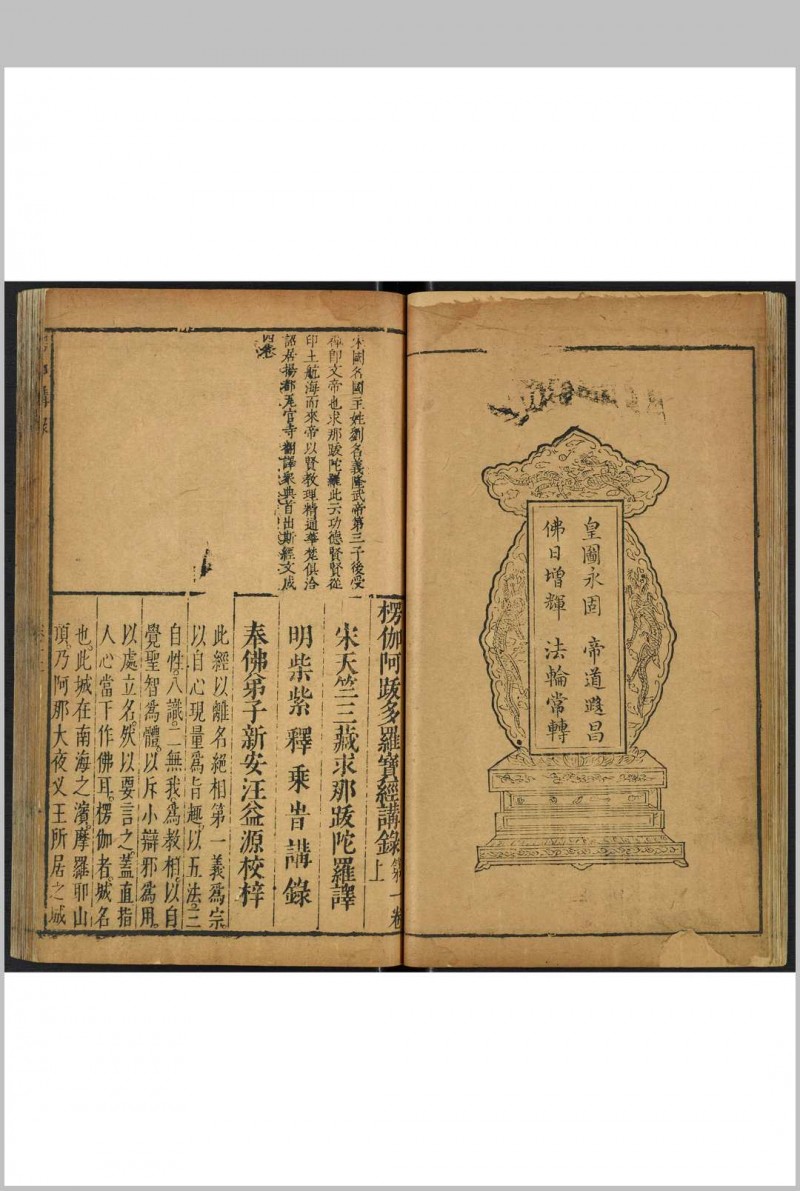 皇圖永固　帝道遐昌
佛日增輝　法輪常轉
楞伽阿䟦多羅寶經講錄 第一卷上
宋天竺三藏求那䟦陀羅譯
明柴紫釋乘旹講錄
奉佛弟子新安汪益源校梓
宋國名國主姓劉名義隆武帝第三子後受
禪即文帝也求那䟦陀羅此云功德賢賢從
印土航海而來帝以賢教理精通華梵俱洽
詔居揚都瓦官寺翻譯衆典首出斯經文成
四卷
此經以離名絕相第一義爲宗
以自心現量爲旨趣以五法三
自性八識二無我爲教相以自
覺聖智爲體以斥小辯邪爲用
以處立名然以要言之蓋直指
人心當下作佛耳楞伽者城名
也此城在南海之濱摩羅耶山
頂乃阿那大夜义王所居之城